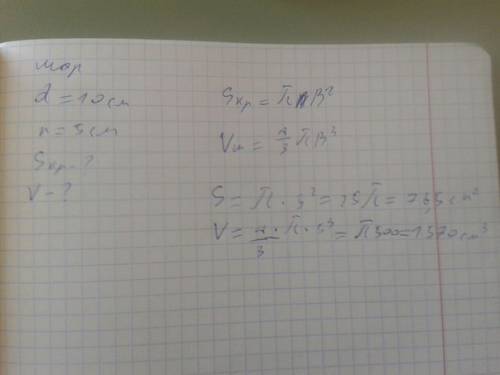 шар
d = 10 см
r = 5 см
Sкр - ?
V - ?
Sкр = π R²
Vш = 4/3 π R³
S = π · 5² = 25π =
V = 4/3 · π · 5³ = π500 = 1570 см³